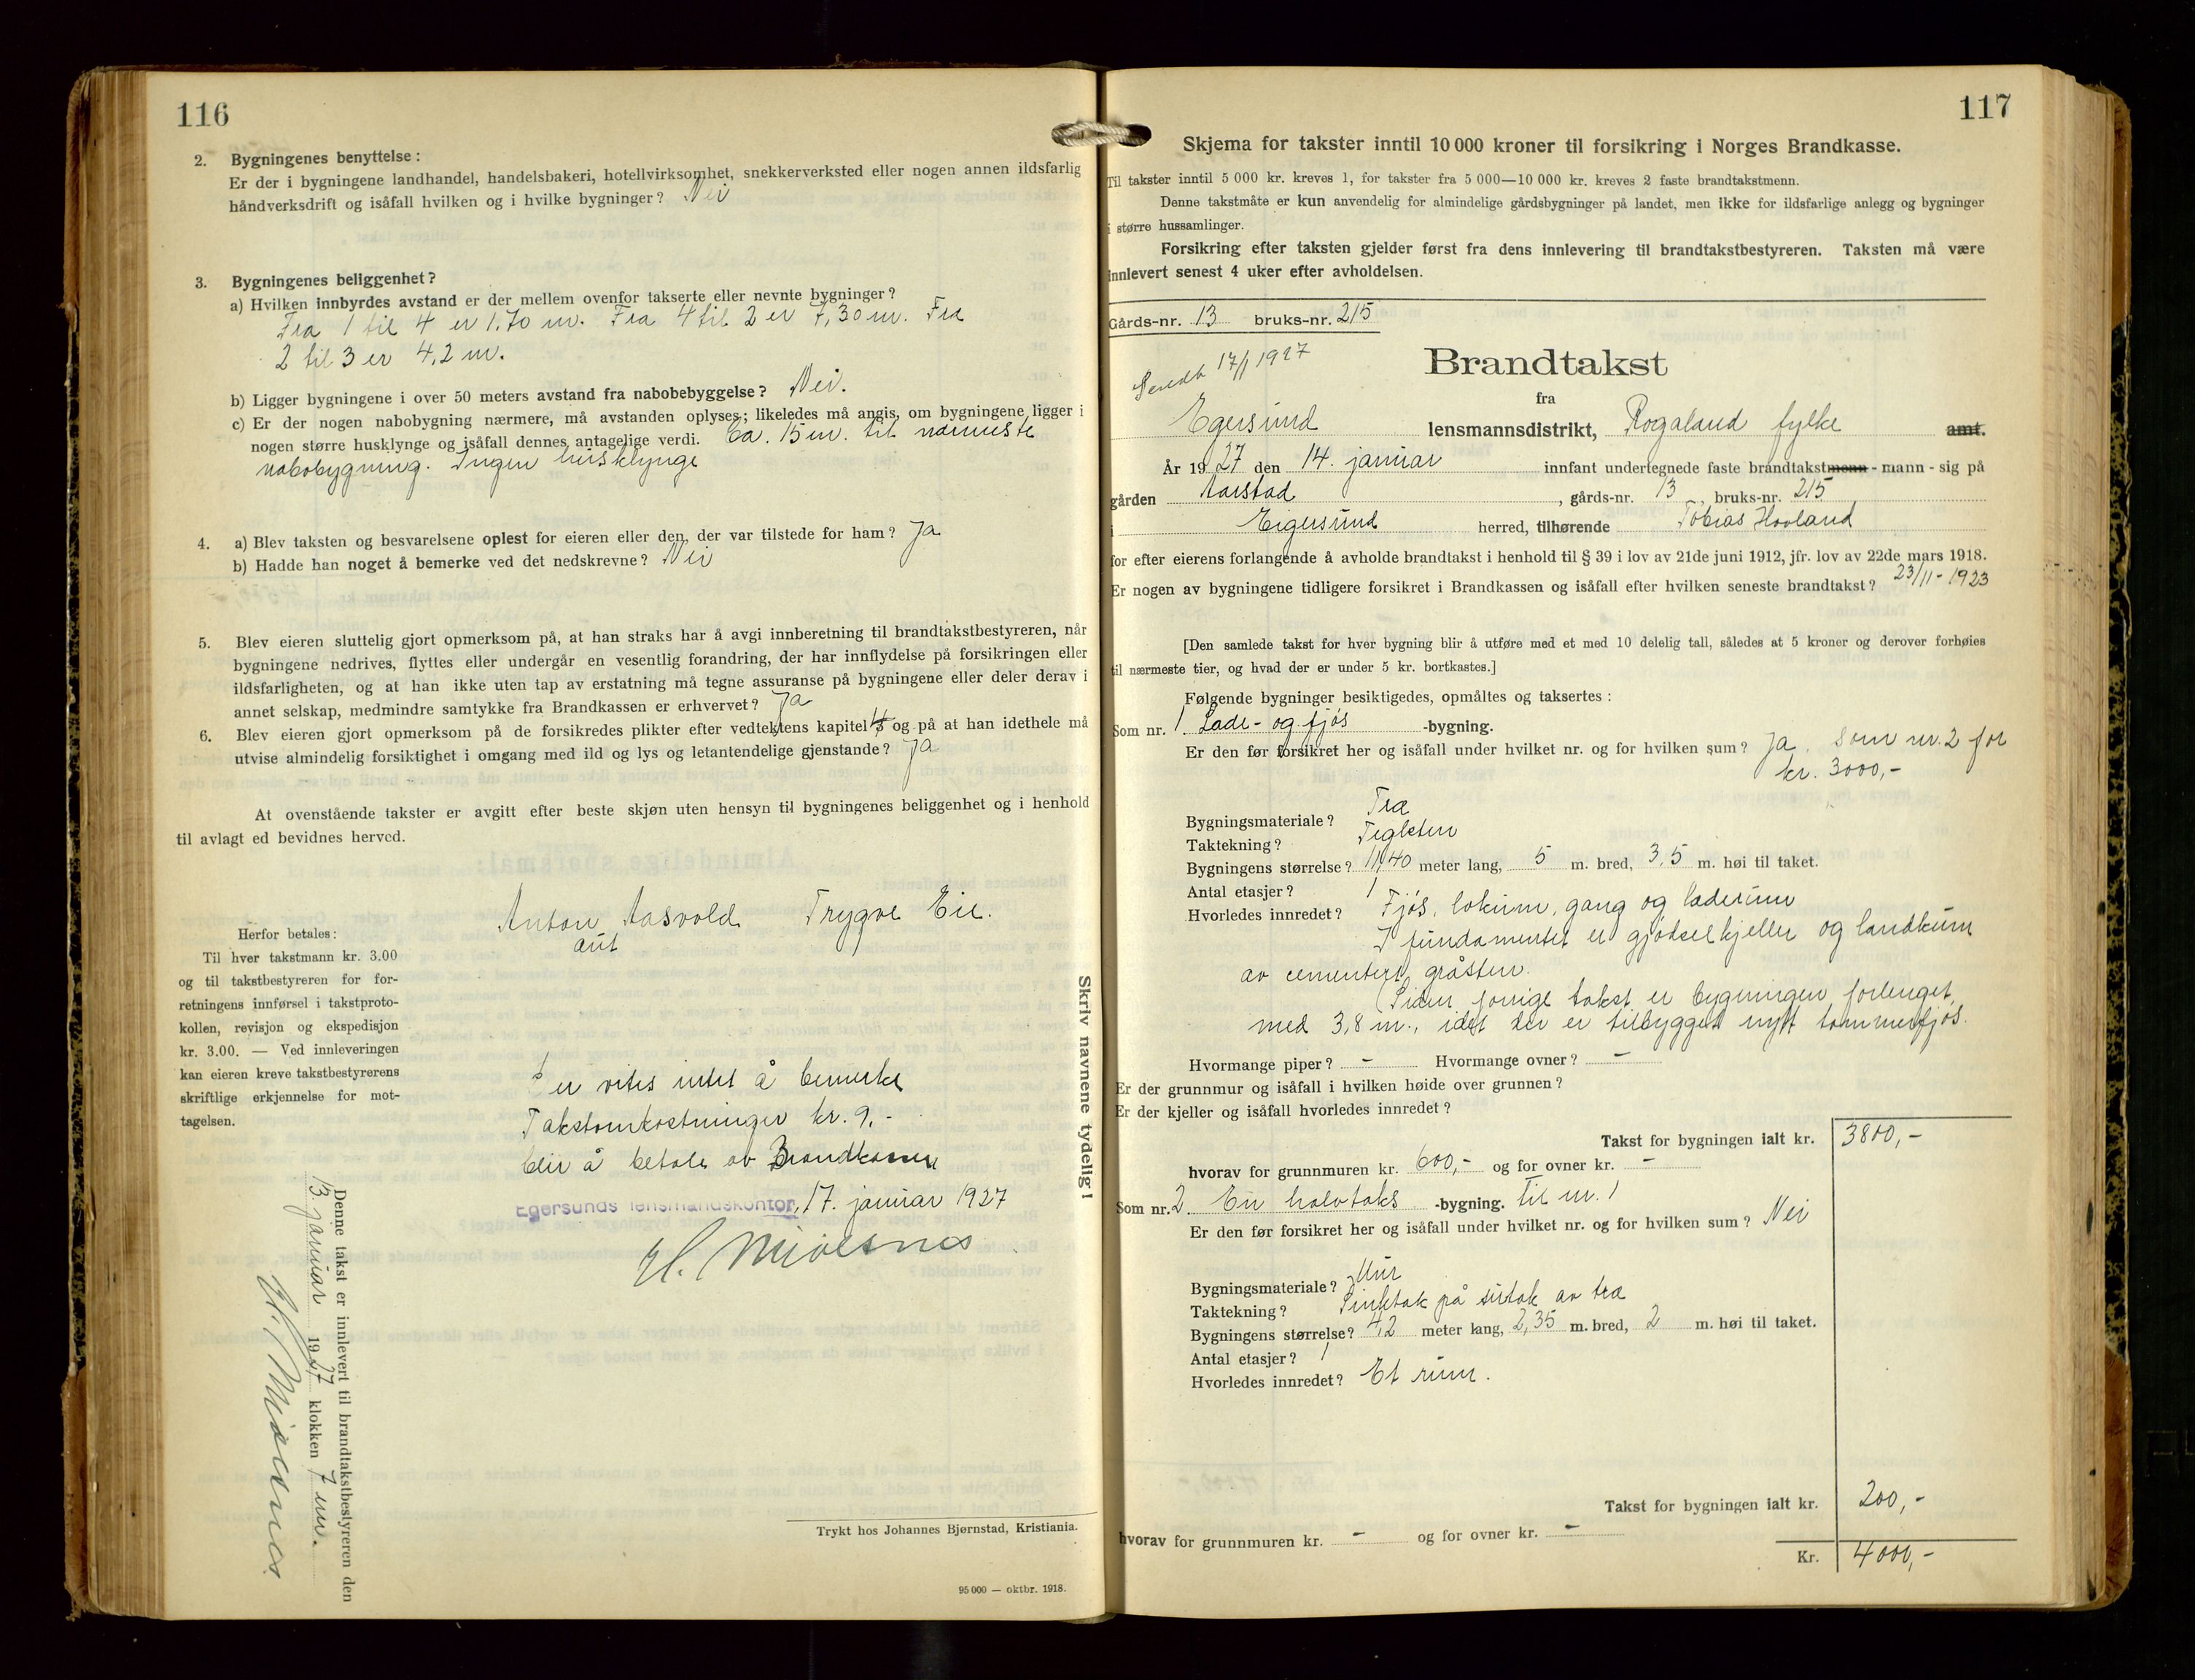 116
2. Bygningenes benyttelse:
Er der i bygningene landhandel, handelsbakeri, hotellvirksomhet, snekkerverksted eller nogen annen ildsfarlig
håndverksdrift og isåfall hvilken og i hvilke bygninger? Nei
3. Bygningenes beliggenhet?
a) Hvilken innbyrdes avstand er der mellem ovenfor takserte eller nevnte bygninger?
Fra 1 til 4 er 1,70 m. Fra 4 til 2 er 7,30 m. Fra
2 til 3 er 4,2 m.
b) Ligger bygningene i over 50 meters avstand fra nabobebyggelse? Nei.
c) Er der nogen nabobygning nærmere, må avstanden oplyses; likeledes må angis, om bygningene ligger i
nogen større husklynge og isåfall dennes antagelige verdi. Ca. 15 m. til nærmeste
nabobygning. Ingen husklynge
4. a) Blev taksten og besvarelsene oplest for eieren eller den, der var tilstede for ham? Ja
b) Hadde han noget å bemerke ved det nedskrevne? Nei
5. Blev eieren sluttelig gjort opmerksom på, at han straks har å avgi innberetning til brandtakstbestyreren, når
bygningene nedrives, flyttes eller undergår en vesentlig forandring, der har innflydelse på forsikringen eller
ildsfarligheten, og at han ikke uten tap av erstatning må tegne assuranse på bygningene eller deler derav i
annet selskap, medmindre samtykke fra Brandkassen er erhvervet? Ja
6. Blev eieren gjort opmerksom på de forsikredes plikter efter vedtektens kapitel 4 og på at han idethele må
utvise almindelig forsiktighet i omgang med ild og lys og letantendelige gjenstande? Ja
At ovenstående takster er avgitt efter beste skjøn uten hensyn til bygningenes beliggenhet og i henhold
til avlagt ed bevidnes herved.
Anton Aasvold Trygve Eie.
aut
Herfor betales:
Til hver takstmann kr. 3.00
og til takstbestyreren for for-
retningens innførsel i takstproto-
kollen, revisjon og ekspedisjon
kr. 3.00. — Ved innleveringen
kan eieren kreve takstbestyrerens
skriftlige erkjennelse for mot-
tagelsen.
vites intet å bemerke
Takstomkostninger kr. 9.-
blir å betale av Brandkassen
Egersunds lensmandskontor, 17. januar 1927
H. Mydsnes
Skriv navnene tydelig!
Denne takst er innlevert til brandtakstbestyreren den
13 januar 1927 klokken 7 em.
Trykt hos Johannes Bjørnstad, Kristiania.
95 000 — oktbr. 1918.
117
Skjema for takster inntil 10 000 kroner til forsikring i Norges Brandkasse.
Til takster inntil 5 000 kr. kreves 1, for takster fra 5 000—10 000 kr. kreves 2 faste brandtakstmenn.
Denne takstmåte er kun anvendelig for almindelige gårdsbygninger på landet, men ikke for ildsfarlige anlegg og bygninger
i større hussamlinger.
Forsikring efter taksten gjelder først fra dens innlevering til brandtakstbestyreren. Taksten må være
innlevert senest 4 uker efter avholdelsen.
Gårds-nr. 13 bruks-nr. 215
Sendt 17/1 1927
Brandtakst
fra
Egersund lensmannsdistrikt, Rogaland fylke amt.
År 1927 den 14. januar innfant undertegnede faste brandtakstmenn - mann - sig på
gården Aarstad, gårds-nr. 13, bruks-nr. 215
i Eigersund herred, tilhørende Tobias Hovland
for efter eierens forlangende å avholde brandtakst i henhold til § 39 i lov av 21de juni 1912, jfr. lov av 22de mars 1918.
Er nogen av bygningene tidligere forsikret i Brandkassen og isåfall efter hvilken seneste brandtakst? 23/11-1923
[Den samlede takst for hver bygning blir å utføre med et med 10 delelig tall, således at 5 kroner og derover forhøies
til nærmeste tier, og hvad der er under 5 kr. bortkastes.]
Følgende bygninger besiktigedes, opmåltes og taksertes:
Som nr. 1 Lade- og fjøs -bygning.
Er den før forsikret her og isåfall under hvilket nr. og for hvilken sum? Ja. Som nr. 2 for
kr. 3000,-
Bygningsmateriale? Træ
Taktekning? Teglsten
Bygningens størrelse? 11,40 meter lang, 5 m. bred, 3,5 m. høi til taket.
Antal etasjer? 1
Hvorledes innredet? Fjøs, lokum, gang og laderum
I fundamentet er gjødselkjeller og landkum
av cementert gråsten.
(Siden forrige takst er bygningen forlenget
med 3,8 m., idet der er tilbygget nytt tømmerfjøs.
Hvormange piper? - Hvormange ovner? -
Er der grunnmur og isåfall i hvilken høide over grunnen?
Er der kjeller og isåfall hvorledes innredet?
Takst for bygningen ialt kr. 3800,-
hvorav for grunnmuren kr. 600,- og for ovner kr. -
Som nr. 2 En halvtaks -bygning. til nr. 1
Er den før forsikret her og isåfall under hvilket nr. og for hvilken sum? Nei
Bygningsmateriale? Mur
Taktekning? Sinktak på sutak av træ
Bygningens størrelse? 4,2 meter lang, 2,35 m. bred, 2 m. høi til taket.
Antal etasjer? 1
Hvorledes innredet? Et rum.
Takst for bygningen ialt kr. 200,-
hvorav for grunnmuren kr. - og for ovner kr. -
Kr. 4000,-